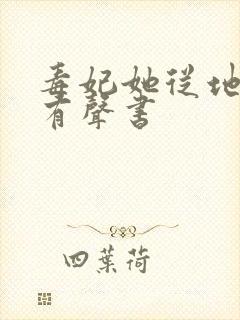 毒妃她從地
有聲書
四葉荷